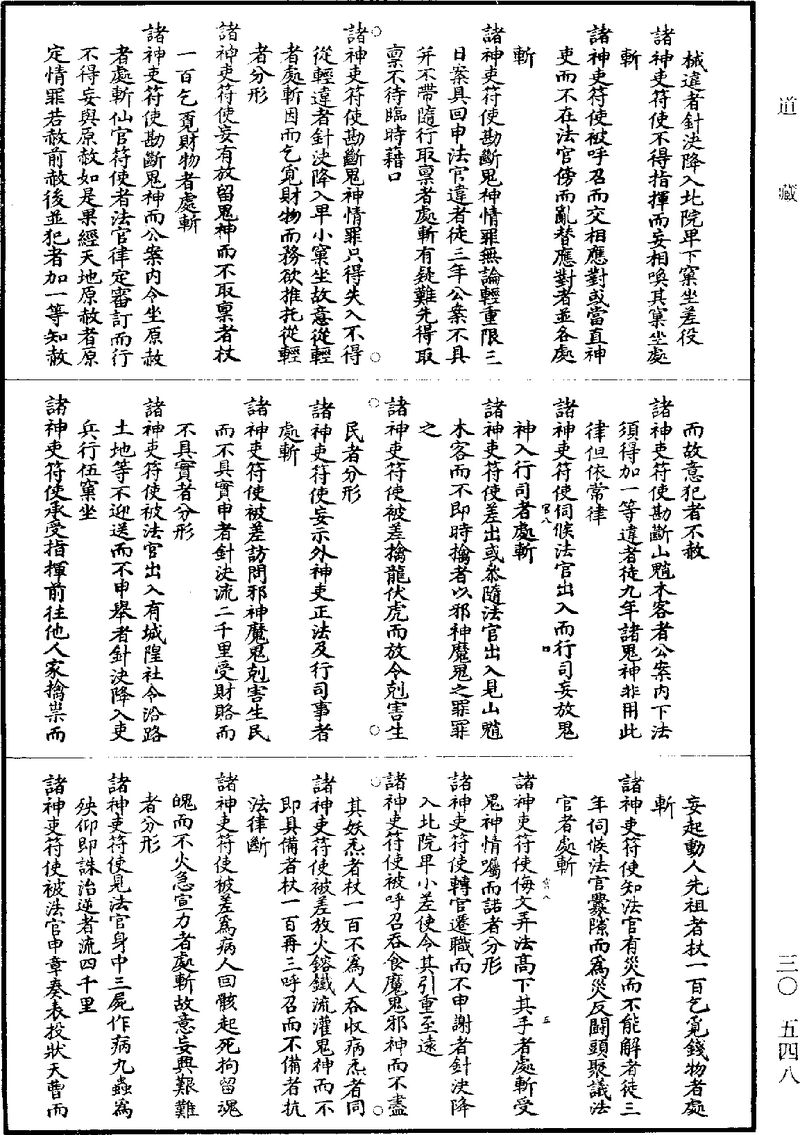 道藏
三〇 五四八
械違者針決降入北院早下窠坐差役
諸神吏符使不得指揮而妄相喚其窠坐處
斬
諸神吏符使被呼召而交相應對或當直神
吏而不在法官傍而亂替應對者並各處
斬
諸神吏符使勘斷鬼神情罪無論輕重限三
日案具回申法官違者徒三年公案不具
并不帶隨行取稟者處斬有疑難先得取
稟不待臨時藉口
諸神吏符使勘斷鬼神情罪只得失入不得
從輕違者針決降入早小窠坐故意從輕
者處斬因而乞覓財物而務欲推托從輕
者分形
諸神吏符使妄有放留鬼神而不取稟者杖
一百乞覓財物者處斬
諸神吏符使勘斷鬼神而公案內令坐原赦
者處斬仙官符使者法官律定審訂而行
不得妄與原赦如是果經天地原赦者原
定情罪若赦前赦後並犯者加一等知赦
而故意犯者不赦
諸神吏符使勘斷山魈木客者公案內下法
須得加一等違者徒九年諸鬼神非用此
律但依常律
諸神吏符使伺候法官出入而行司妄放鬼
神入行司者處斬
諸神吏符使差出或叅隨法官出入見山魈
木客而不即時擒者以邪神魔鬼之罪罪
之
諸神吏符使被差擒龍伏虎而放令剋害生
民者分形
諸神吏符使妄示外神吏正法及行司事者
處斬
諸神吏符使被差訪問邪神魔鬼剋害生民
而不具實申者針決流二千里受財賂而
不具實者分形
諸神吏符使被法官出入有城隍社令沿路
土地等不迎送而不申舉者針決降入吏
兵行伍窠坐
諸神吏符使承受指揮前往他人家擒祟而
妄起動人先祖者杖一百乞覓錢物者處
斬
諸神吏符使知法官有災而不能解者徒三
年伺候法官釁隙而為災反鬪頭聚議法
官者處斬
諸神吏符使侮文弄法高下其手者處斬受
鬼神情囑而諾者分形
諸神吏符使轉官遷職而不申謝者針決降
入北院早小差使令其引重至遠
諸神吏符使被呼召吞食魔鬼邪神而不盡
其妖炁者杖一百不為人吞收病炁者同
諸神吏符使被差放火鎔鐵流灌鬼神而不
即具備者杖一百再三呼召而不備者抗
法律斷
諸神吏符使被差為病人回骸起死拘留魂
魄而不火急宣力者處斬故意妄興艱難
者分形
諸神吏符使見法官身中三屍作病九蟲為
殃仰即誅治逆者流四千里
諸神吏符使被法官申章奏表投狀天曹而